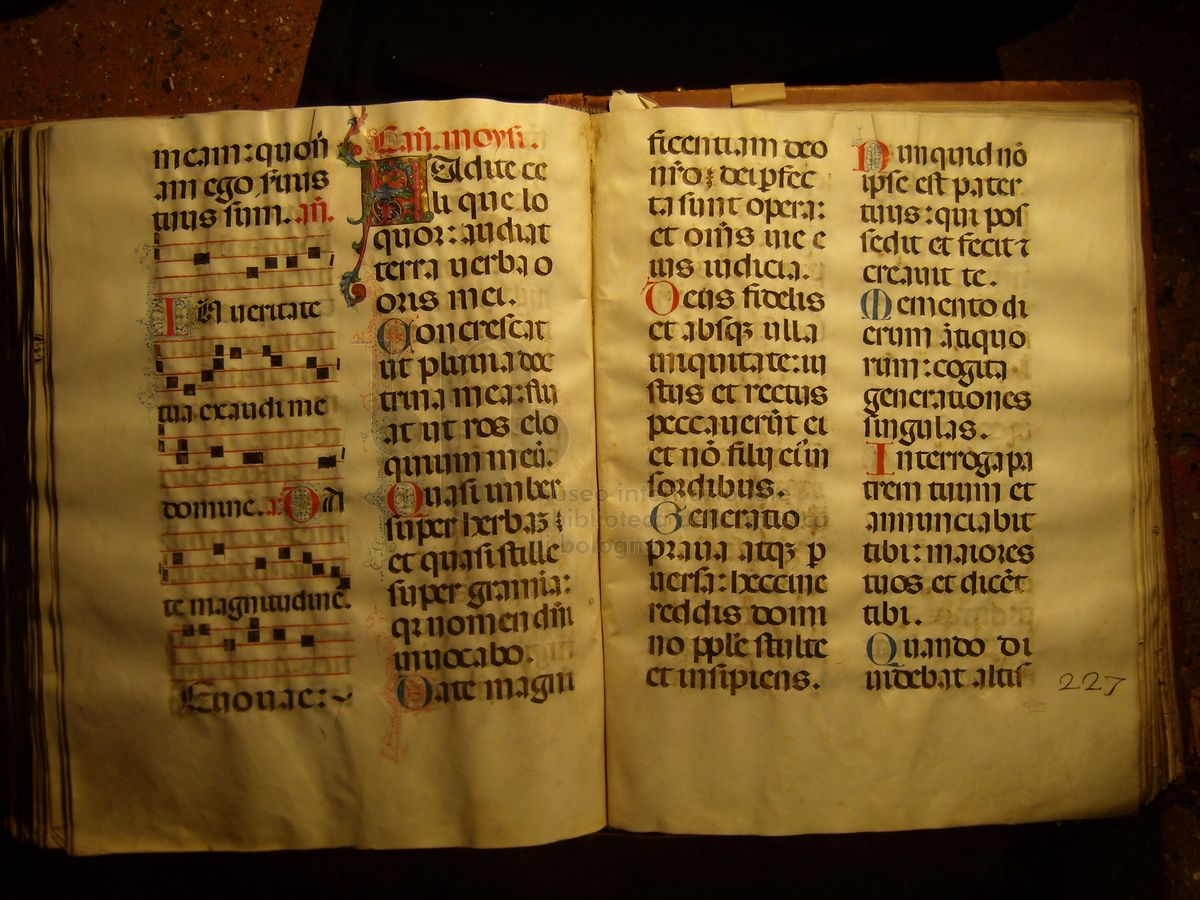 meam: quoñ
iam ego seruus
tuus sum. añ.
In ueritate
tua exaudi me
domine. a Odi
te magnitudinē.
Euouae:
Cañ. moysi.
Audite ce
li que lo
quor: audiat
terra uerba o
oris mei.
Concrescat
ut pluuia doc
trina mea: flu
at ut ros elo
quium meū.
Quasi imber
super herbaʒ ⁊
et quasi stille
super gramina:
qꝛ nomen dñi
inuocabo.
Date magni
ficentiam deo
nr̄o: dei ꝑfec
ta sunt opera:
et om̄s uie e
ius iudicia.
Deus fidelis
et absqʒ ulla
iniquitate: iu
stus et rectus
peccauerūt ei
et nō filij eiꝰ in
sordibus.
Generatio
praua atqʒ ꝑ
uersa: heccine
reddis domi
no pple stulte
et insipiens.
Nunquid nō
ipse est pater
tuus: qui pos
sedit et fecit ⁊
creauit te.
Memento di
erum ātiquo
rum: cogita
generationes
singulas.
Interroga pa
trem tuum et
annunciabit
tibi: maiores
tuos et dicēt
tibi.
Quando di
uidebat altis
227